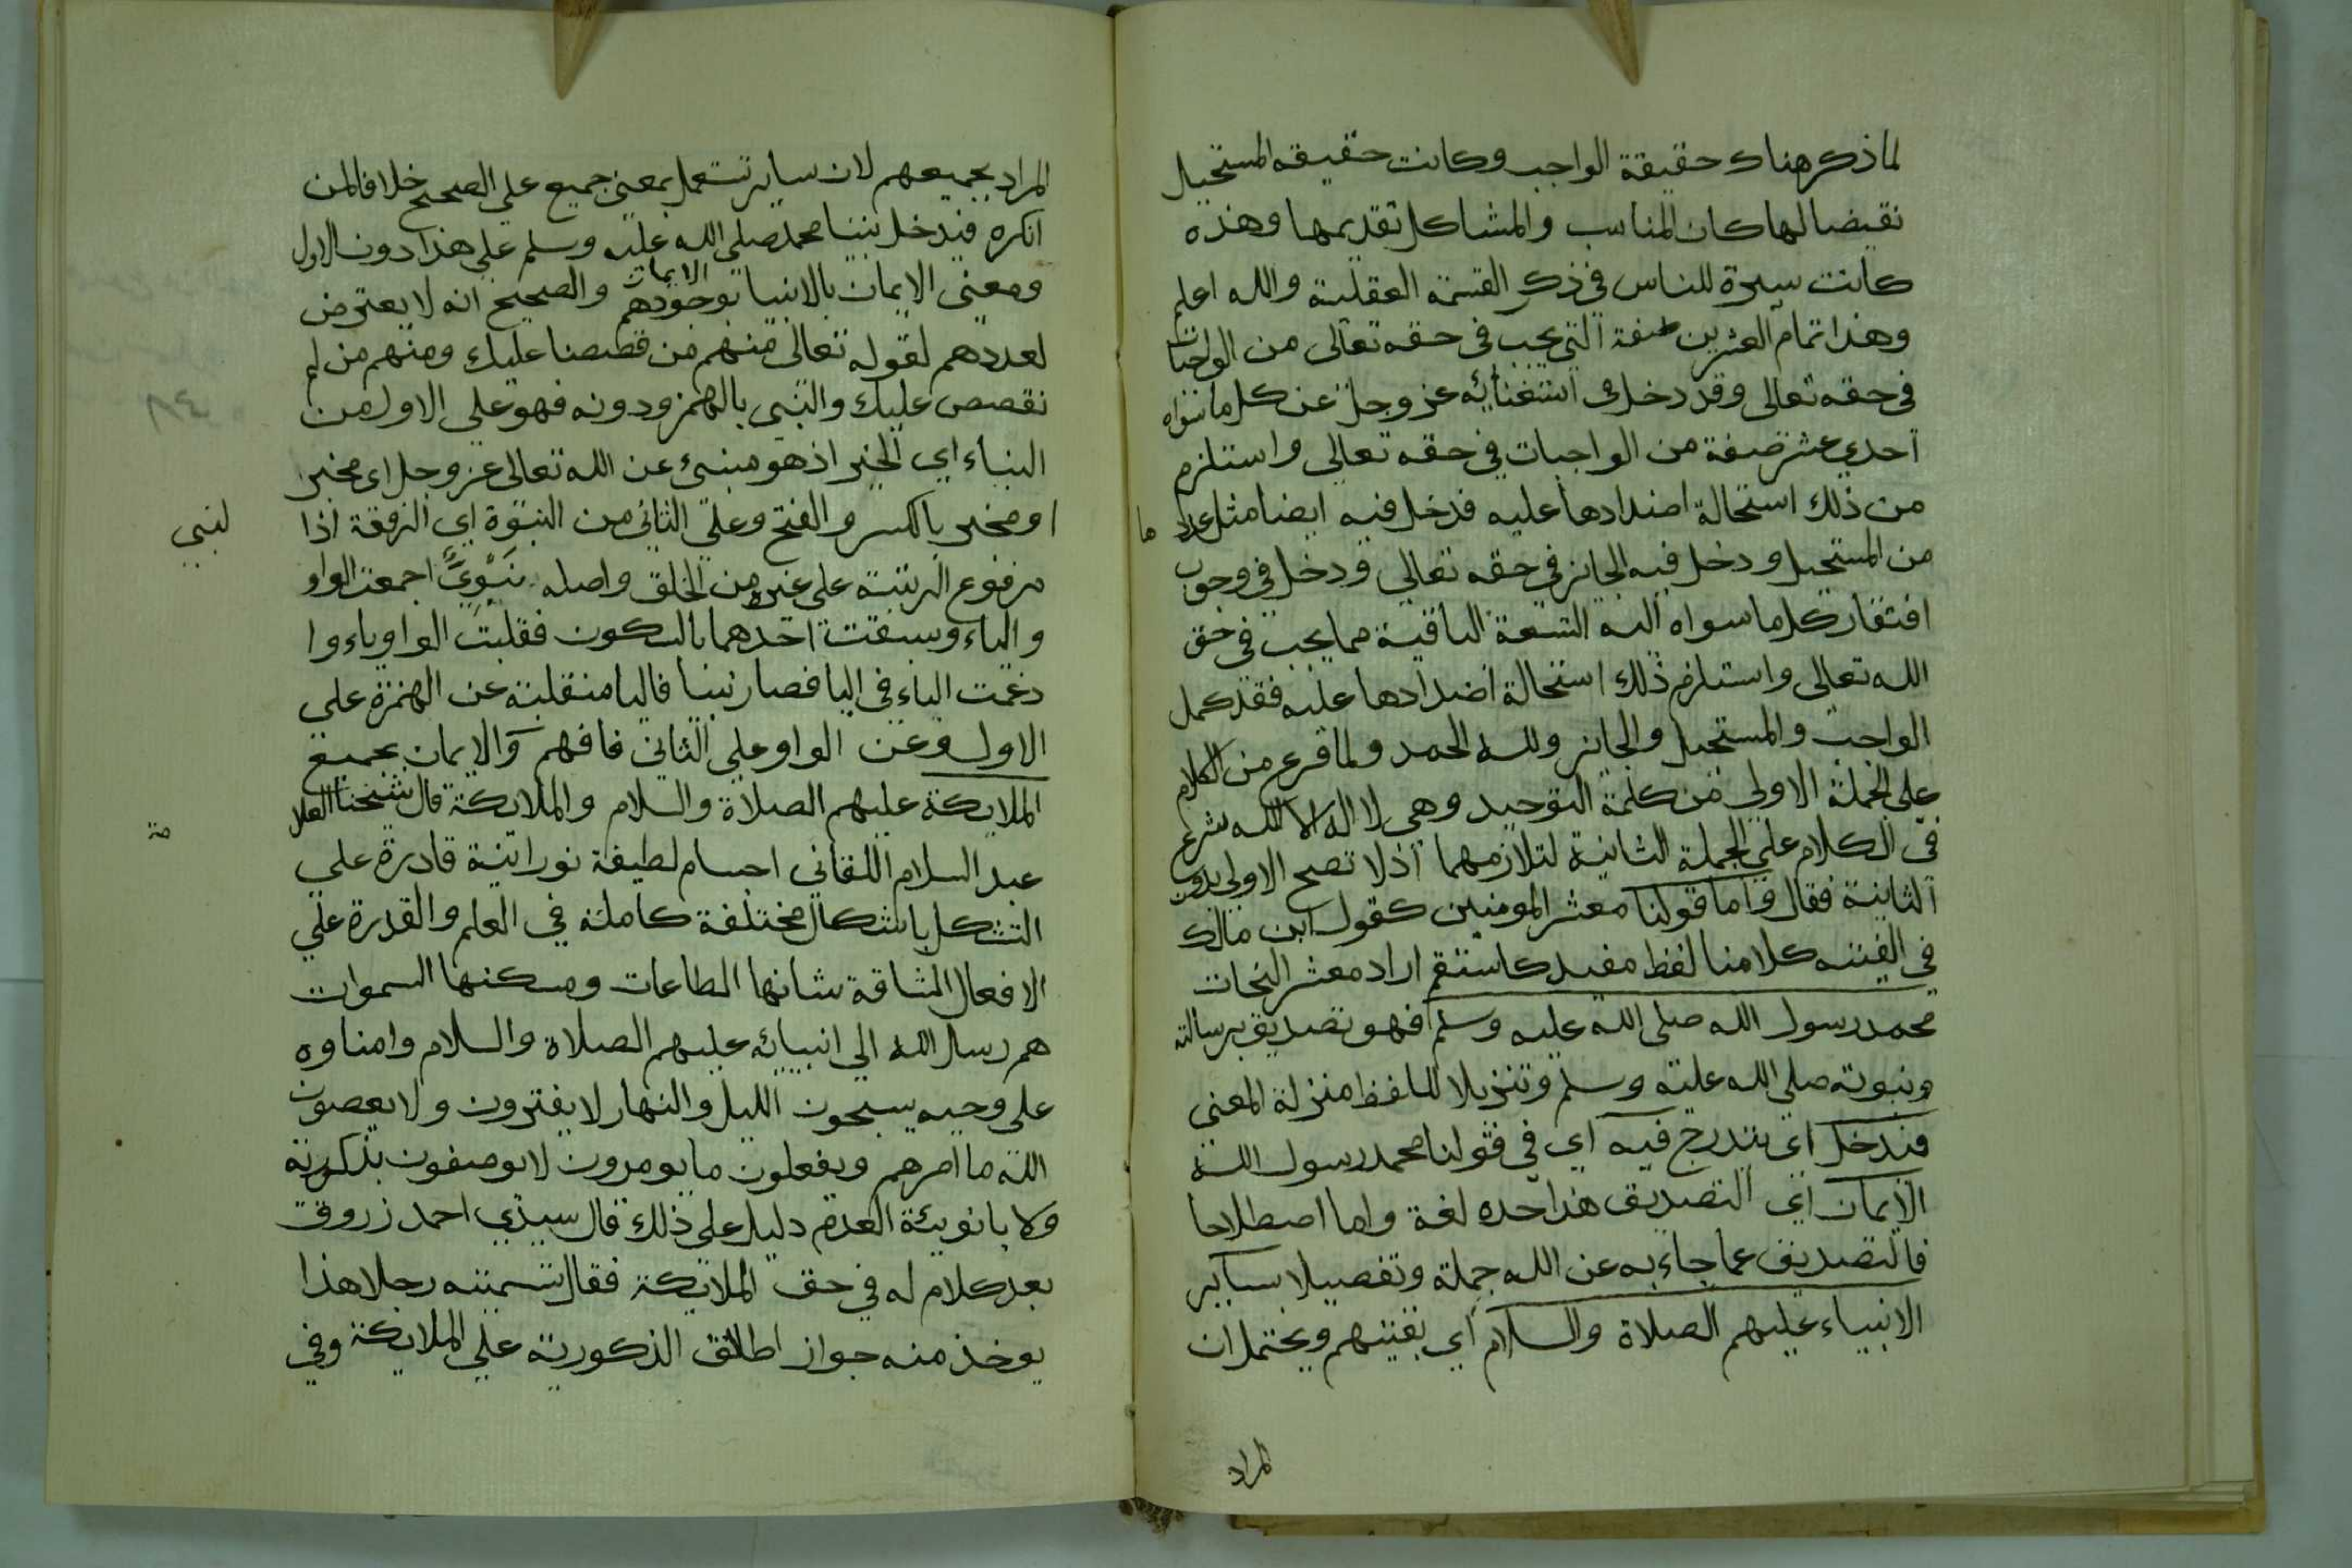 لما ذكر هناك حقيقة الواجب وكانت حقيقه المستحيل
نقيضا لها كان المناسب والمشاكل تقديمها وهذه
كانت سيرة للناس في ذكر القسمة العقلية والله اعلم
وهذا تمام العشرين صفة التي يجب في حقه تعالى من الواجبات
في حقه تعالى وقد دخل في استغنائه عز وجل عن كل ما سواه
احدي عشر صفة من الواجبات في حقه تعالى واستلزم
من ذلك استحالة اضدادها عليه فدخل فيه ايضا مثل عدد ما
من المستحيل ودخل فيه الجائز في حقه تعالي ودخل في وجوب
افتقار كل ما سواه اليه التسعة الباقية مما يجب في حق
الله تعالى واستلزم ذلك استحالة اضدادها عليه فقد كمل
الواجب والمستحيل والجائز ولله الحمد ولما فرع من الكلام
علي الجملة الاولي من كلمة التوحيد وهي لا اله الا الله شرع
في الكلام علي الجملة الثانية لتلازمهما اذ لا تصح الاولي بدون
الثانية فقال واما قولنا معشر المومنين كقول ابن مالك
في الفيته كلامنا لفظ مفيد كاستقم اراد معشر النحات
محمد رسول الله صلى الله عليه وسلم فهو تصديق برسالته
ونبوته صلي الله عليه وسلم وتنزيلا للفظ منزلة المعني
فيدخل اي يندرج فيه اي في قولنا محمد رسول الله
الايمان اي التصديق هذا حده لغة واما اصطلاحا
فالتصديق عما جاء به عن الله جملة وتفصيلا بساير
الانبياء عليهم الصلاة والسلام اي بقيتهم ويحتمل ان
المراد
المراد بجميعهم لان ساير تستعمل بمعنى جميع علي الصحيح خلافا لمن
انكره فيدخل نبينا محمد صلي الله عليه وسلم علي هذا دون الاول
ومعنى الايمان بالانبيا الايمان بوجودهم والصحيح انه لا يعترض
لعددهم لقوله تعالى منهم من قصصنا عليك ومنهم من لم
نقصص عليك والنبي بالهمز ودونه فهو علي الاول من
النباء اي الخبر اذ هو مبنئ عن الله تعالى عز وجل اي مخبر
او مخبر بالكسر والفتح وعلي الثاني من النبوة اي الرفعة اذا لنبي
مرفوع الرتبة على غيره من الخلق واصله نبيو اجمعت الواو
والياء وسبقت احدهما بالسكون فقلبت الواو ياء وا
دغمت الياء في اليا فصار نبيا فاليا منقلبة عن الهمزة علي
الاول وعن الواو علي الثاني فافهم والايمان بجميع
الملايكة عليهم الصلاة والسلام والملايكة قال شيخنا العلا مة
عبد السلام اللقاني اجسام لطيفة نورانية قادرة علي
التشكل باشكال مختلفة كاملة في العلم والقدرة علي
الافعال الشاقة شانها الطاعات ومسكنها السموات
هم رسل الله الي انبيائه عليهم الصلاة والسلام وامناوه
على وحيه يسبحون الليل والنهار لا يفترون ولا يعصون
الله ما امرهم ويفعلون ما يومرون لا يوصفون بذكورته
ولا بانوثة لعدم دليل على ذلك قال سيدي احمد زروق
بعد كلام له في حق الملايكة فقال تسميته رجلا هذا
يوخذ منه جواز اطلاق الذكورية علي الملايكة وفي